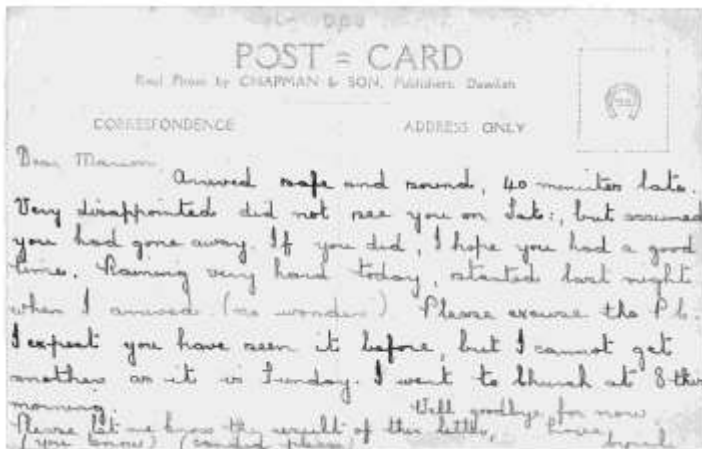 POST = CARD
Real Photo by CHAPMAN & SON, Publishers, Dawlish
CORRESPONDENCE ADDRESS ONLY
Dear Marion
Arrived safe and sound, 40 minutes late.
Very disappointed did not see you on Sat:, but assumed
you had gone away. If you did, I hope you had a good
time. Raining very hard today, started last night
when I arrived (no wonder). Please excuse the P.C.
I expect you have seen it before, but I cannot get
another as it is Sunday. I went to Church at 8 this
morning. Well goodbye for now
Please let me know the result of this letter,
(you know) (candid please)